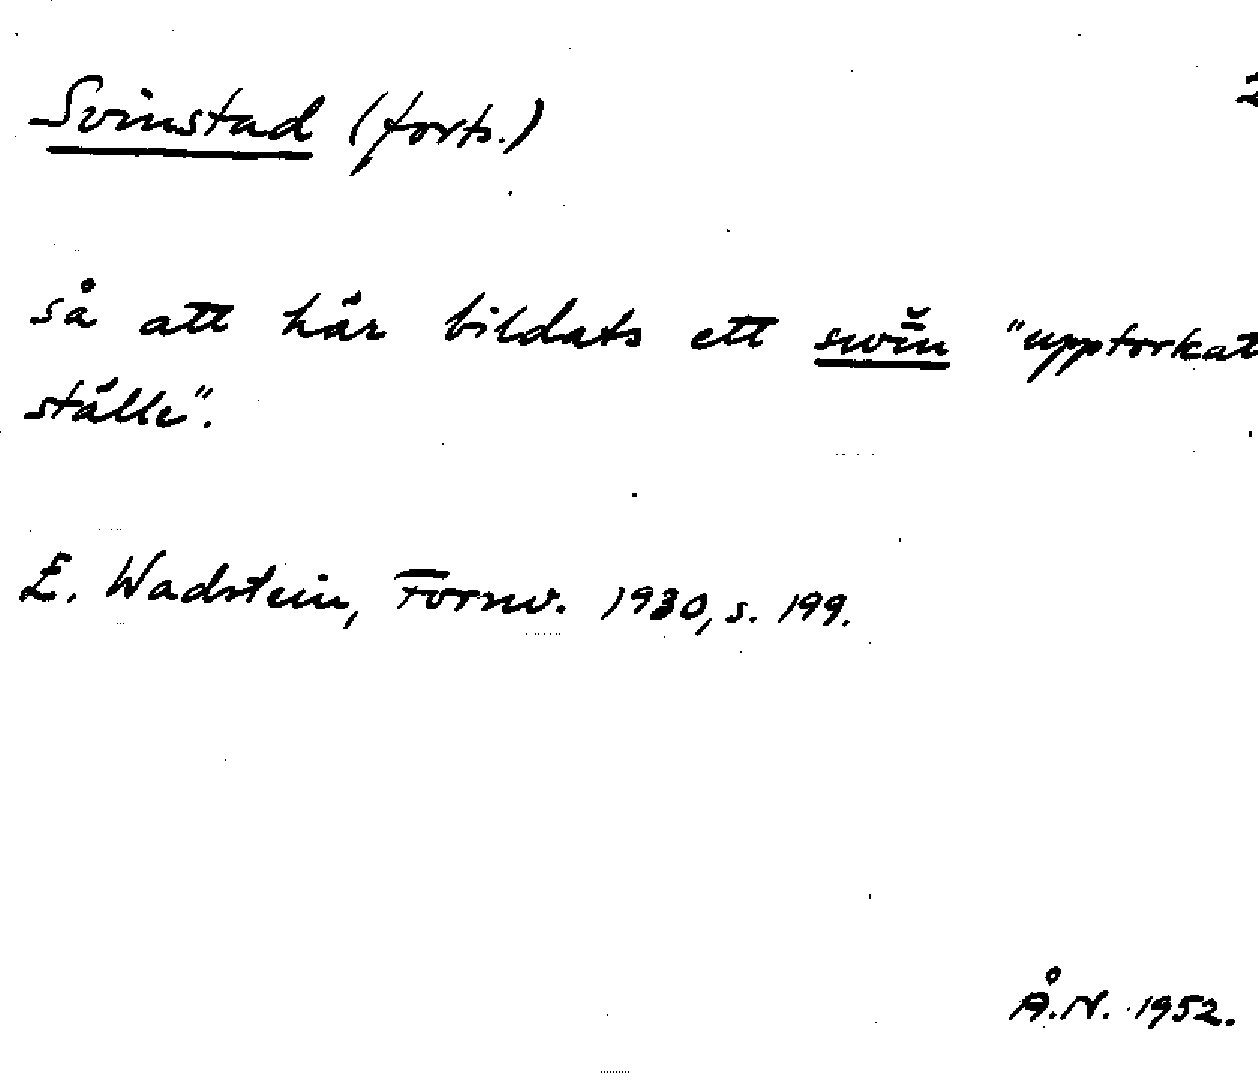 Svinstad (forts.) 2
så att här bildats ett swīn "upptorkat
ställe".
E. Wadstein, Fornv. 1930, s. 199.
Å.N. 1952.